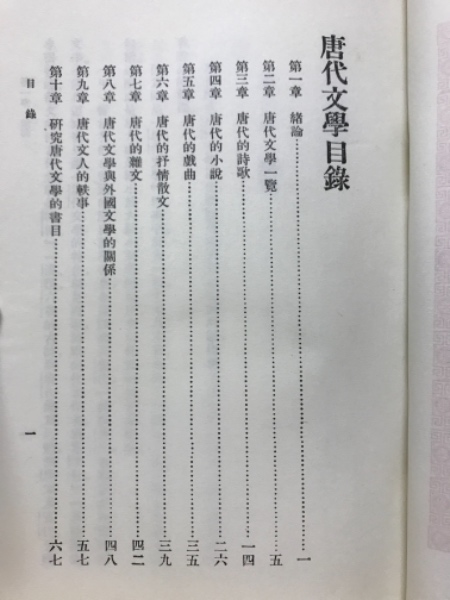 唐代文學目錄
第一章 緒論……………………一
第二章 唐代文學一覽……………………五
第三章 唐代的詩歌……………………一四
第四章 唐代的小說……………………二六
第五章 唐代的戲曲……………………三五
第六章 唐代的抒情散文……………………三九
第七章 唐代的雜文……………………四二
第八章 唐代文學與外國文學的關係……………………四八
第九章 唐代文人的軼事……………………五七
第十章 研究唐代文學的書目……………………六七
目錄 一